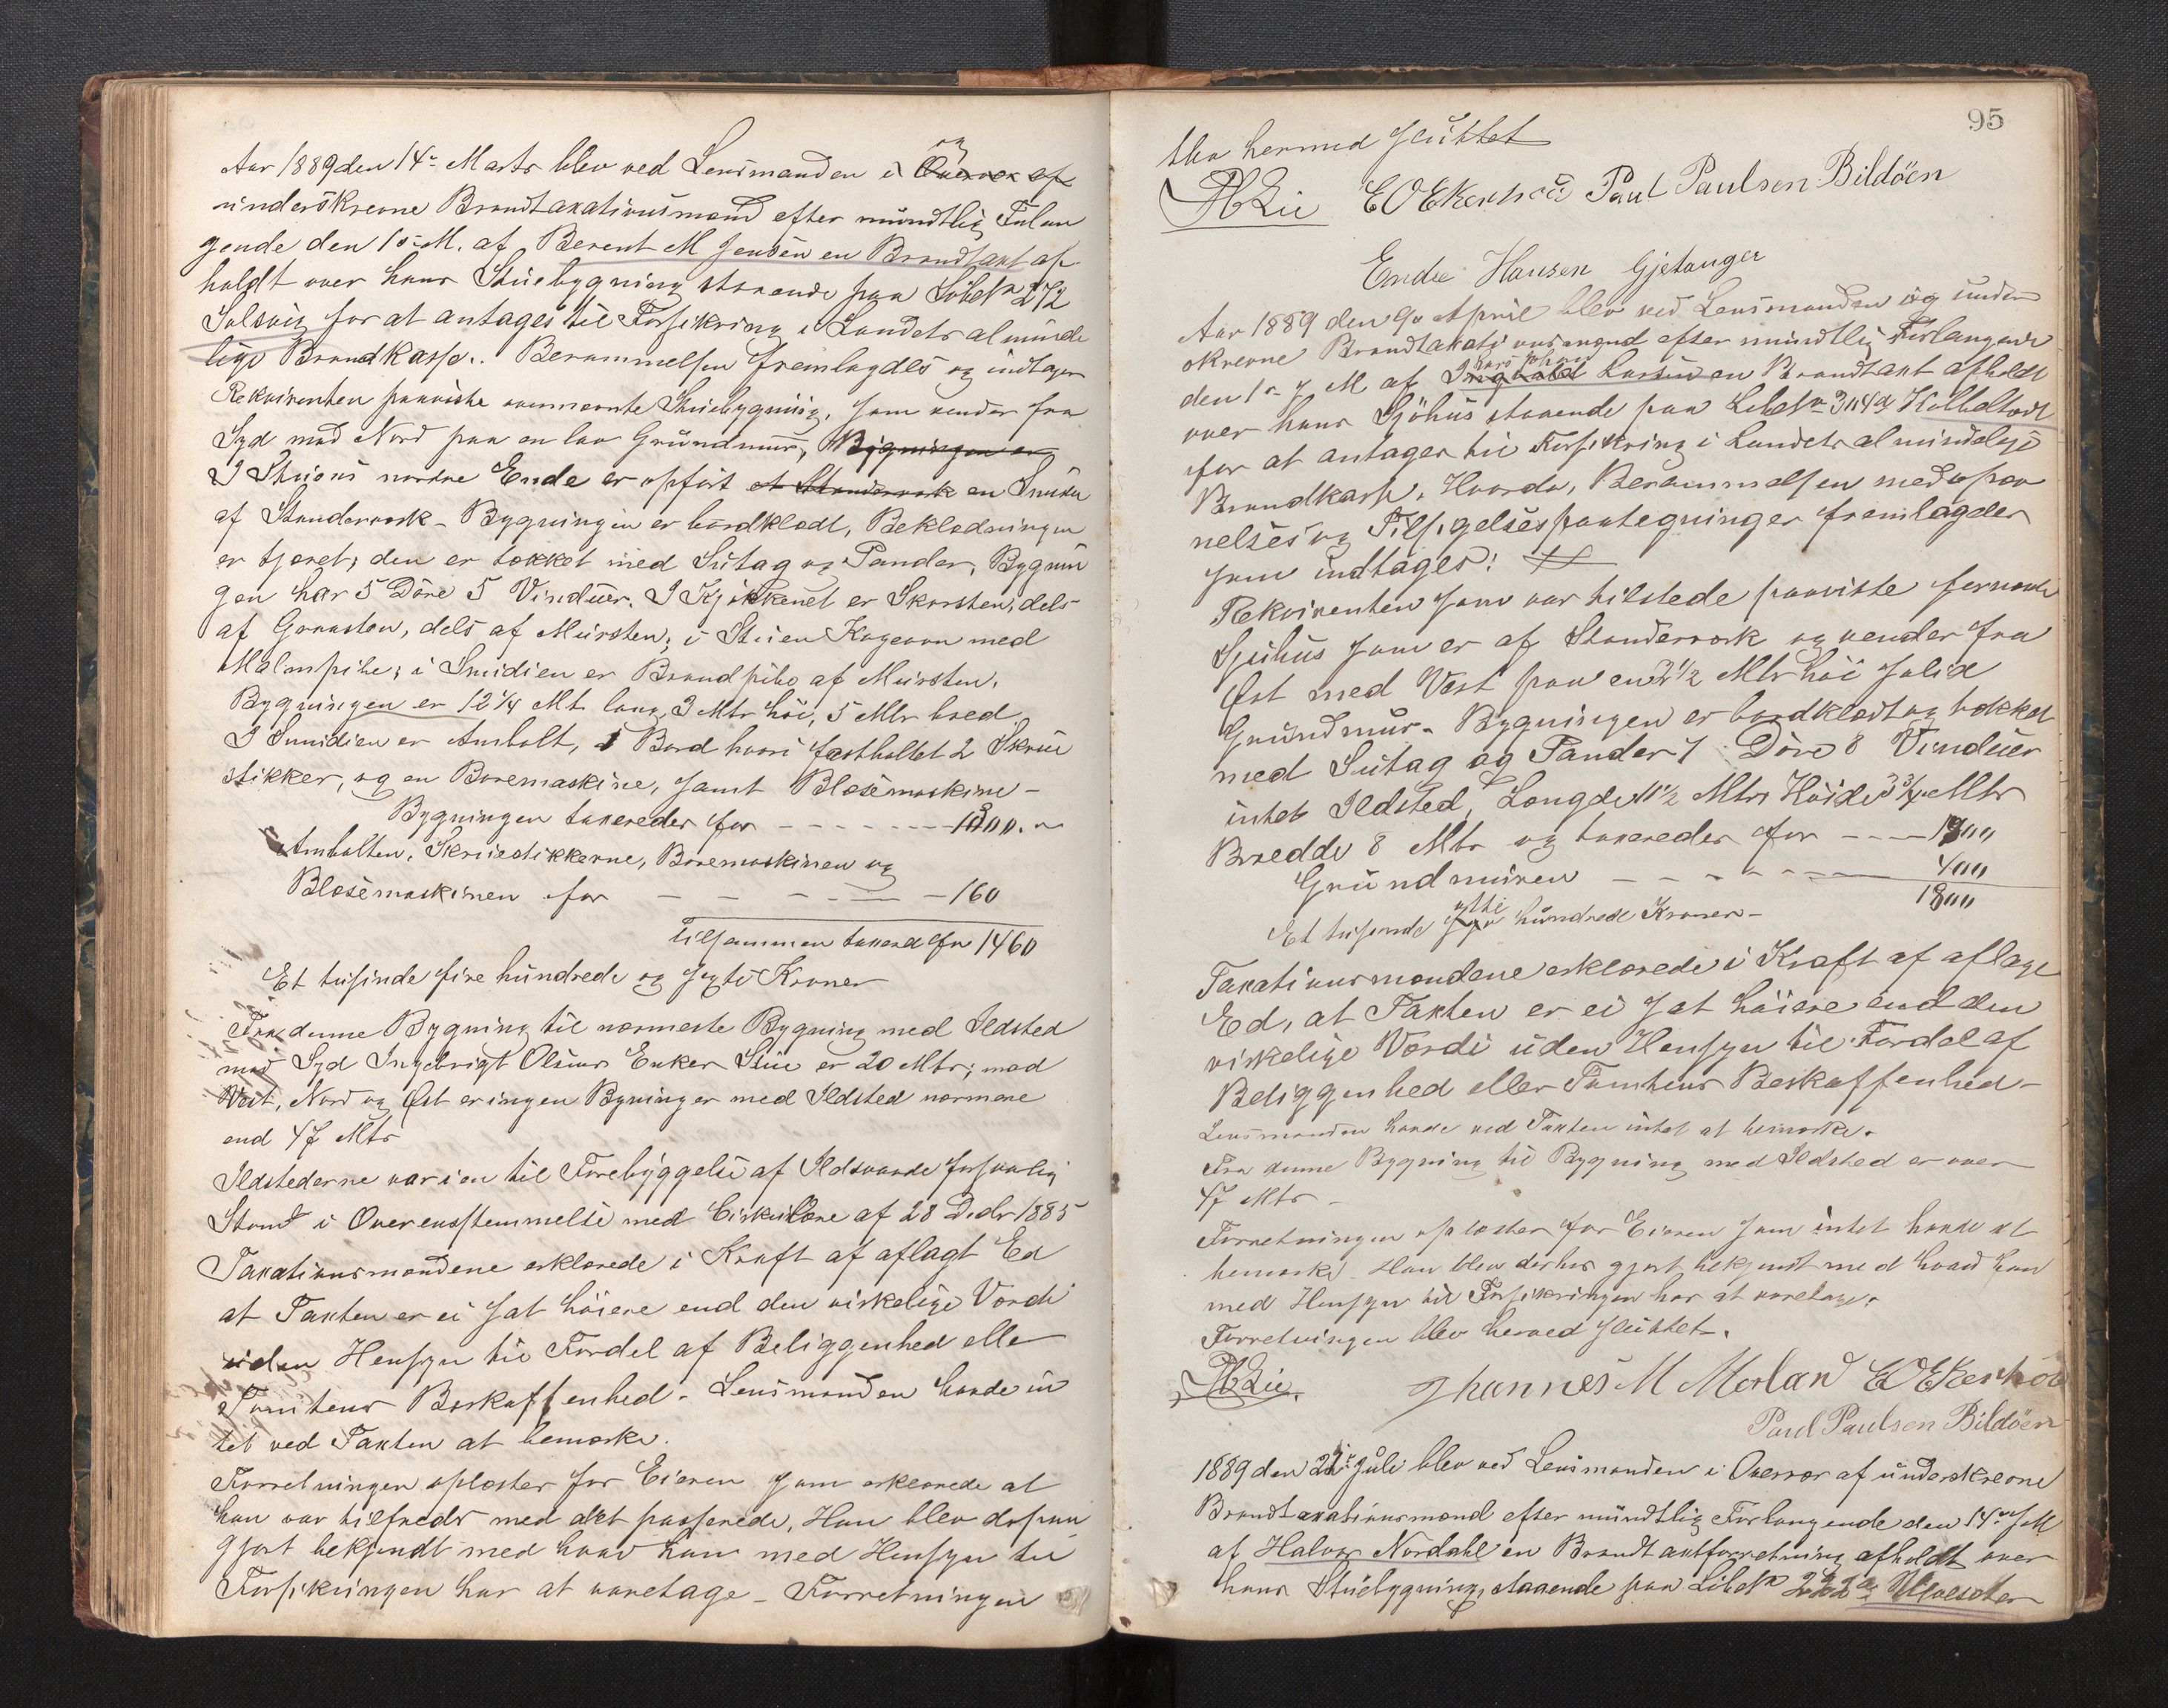 Aar 1889 den 14de Marts blev ved Lensmanden i Overvær af og
underskrevne Brandtaxationsmænd efter mundtlig Forlan
gende den 15 M. af Berent M Jensen en Brandtaxt af
holdt over hans Stuebygning staaende paa Löbe No 272
Solsvig for at antages til Forsikring i Landets alminde
lige Brandkasse. Berammelsen fremlagdes og indtages
Rekvirenten paaviste ovennævnte Stuebygning, som vender fra
Syd mod Nord paa en lav Grundmur, Bygningen er
I Stuens nordre Ende er opfört et Stenderværk en Smidie
af Stenderværk - Bygningen er bordklædt, Beklædningen
er tjæret; den er tækket med Sutag og Pander, Bygnin
gen har 5 Döre 5 Vinduer. I Kjökkenet er Skorsten, dels
af Graasten, dels af Mursten; i Stuen Kogeovn med
Malmpibe; i Smidien er Brandpibe af Mursten.
Bygningen er 12 1/4 Mt. lang, 3 Mtr höi, 5 Mtr bred
I Smidien er Ambolt, 1 Bord hvori fastholdet 2 Skrue
stikker, og en Boremaskine, samt Blæsemaskine -
Bygningen taxeredes for - - - - - - - 1300. "
Ambolten, Skruestikkerne, Boremaskinen og
Blæsemaskinen for - - - - - - 160
tilsammen taxered for 1460
Et tusinde fire hundrede og sexti Kroner
Fra denne Bygning til nærmeste Bygning med Ildsted
mod Syd Ingebrigt Olsens Enkes Stue er 20 Mtr; mod
Vest, Nord og Öst er ingen Bygninger med Ildsted nærmere
end 47 Mtr
Ildstederne var i en til Forebyggelse af Ildsvaade forsvarlig
Stand i Overensstemmelse med Cirkulære af 28 Decbr 1885
Taxationsmændene erklærede i Kraft af aflagt Ed
at Taxten er ei sat höiere end den virkelige Værdi
uden Hensyn til Fordel af Beliggenhed elle
Tomtens Beskaffenhed. Lensmanden havde in
tet ved Taxten at bemærke.
Forretningen oplæstes for Eieren som erklærede at
han var tilfreds med det passerede, Han blev derpaa
gjort bekjendt med hvad han med Hensyn til
Forsikringen har at varetage - Forretningen
95
blev hermed sluttet
ALie EO Ekerhovd Paul Paulsen Bildöen
Endre Hansen Gjetanger
Aar 1889 den 9de April blev ved Lensmanden og under
skrevne Brandtaxationsmænd efter mundtlig Forlangende
den 1ste s. M af Ingvald Larsen en Brandtaxt afholdt
over hans Sjöhus staaende paa Löbe No 304a Kolbeltvedt
for at antages til Forsikring i Landets almindelige
Brandkasse. Hvorda, Berammelsen med opaa
nelses og Tilsigelsespaategninger fremlagdes
som indtages:
Rekvirenten som var tilstede paaviste fornævnte
Sjöhus som er af Stenderværk og vender fra
Öst mod Vest paa en 2 1/2 Mtr höi solid
Grundmur. Bygningen er bordklædt og tækket
med Sutag og Pander 7 Döre 8 Vinduer
intet Ildsted, Længde 11 1/2 Mtr, Höide 3 3/4 Mtr
Bredde 8 Mtr og taxeredes for - - - - 1400
Grundmuren - - - - - - 400
1800
Et tusende otte hundrede Kroner -
Taxationsmændene erklærede i Kraft af aflagt
Ed, at Taxten er ei sat höiere end den
virkelige Værdi uden Hensyn til Fordel af
Beliggenhed eller Tomtens Beskaffenhed -
Lensmanden havde ved Taxten intet at bemærke.
Fra denne Bygning til Bygning med Ildsted er over
47 Mtr -
Forretningen oplæstes for Eieren som intet havde at
bemærke - Han blev derhos gjort bekjendt med hvad han
med Hensyn til Forsikringen har at varetage.
Forretningen blev herved sluttet.
ALie. Johannes M Morland EO Ekerhovd
Paul Paulsen Bildöen
1889 den 22de Juli blev ved Lensmanden i Overvær af underskrevne
Brandtaxationsmænd efter mundtlig Forlangende den 14de s M
af Halvor Nordahl en Brandtaxtforretning afholdt over
hans Stuebygning, staaende paa Löbe No